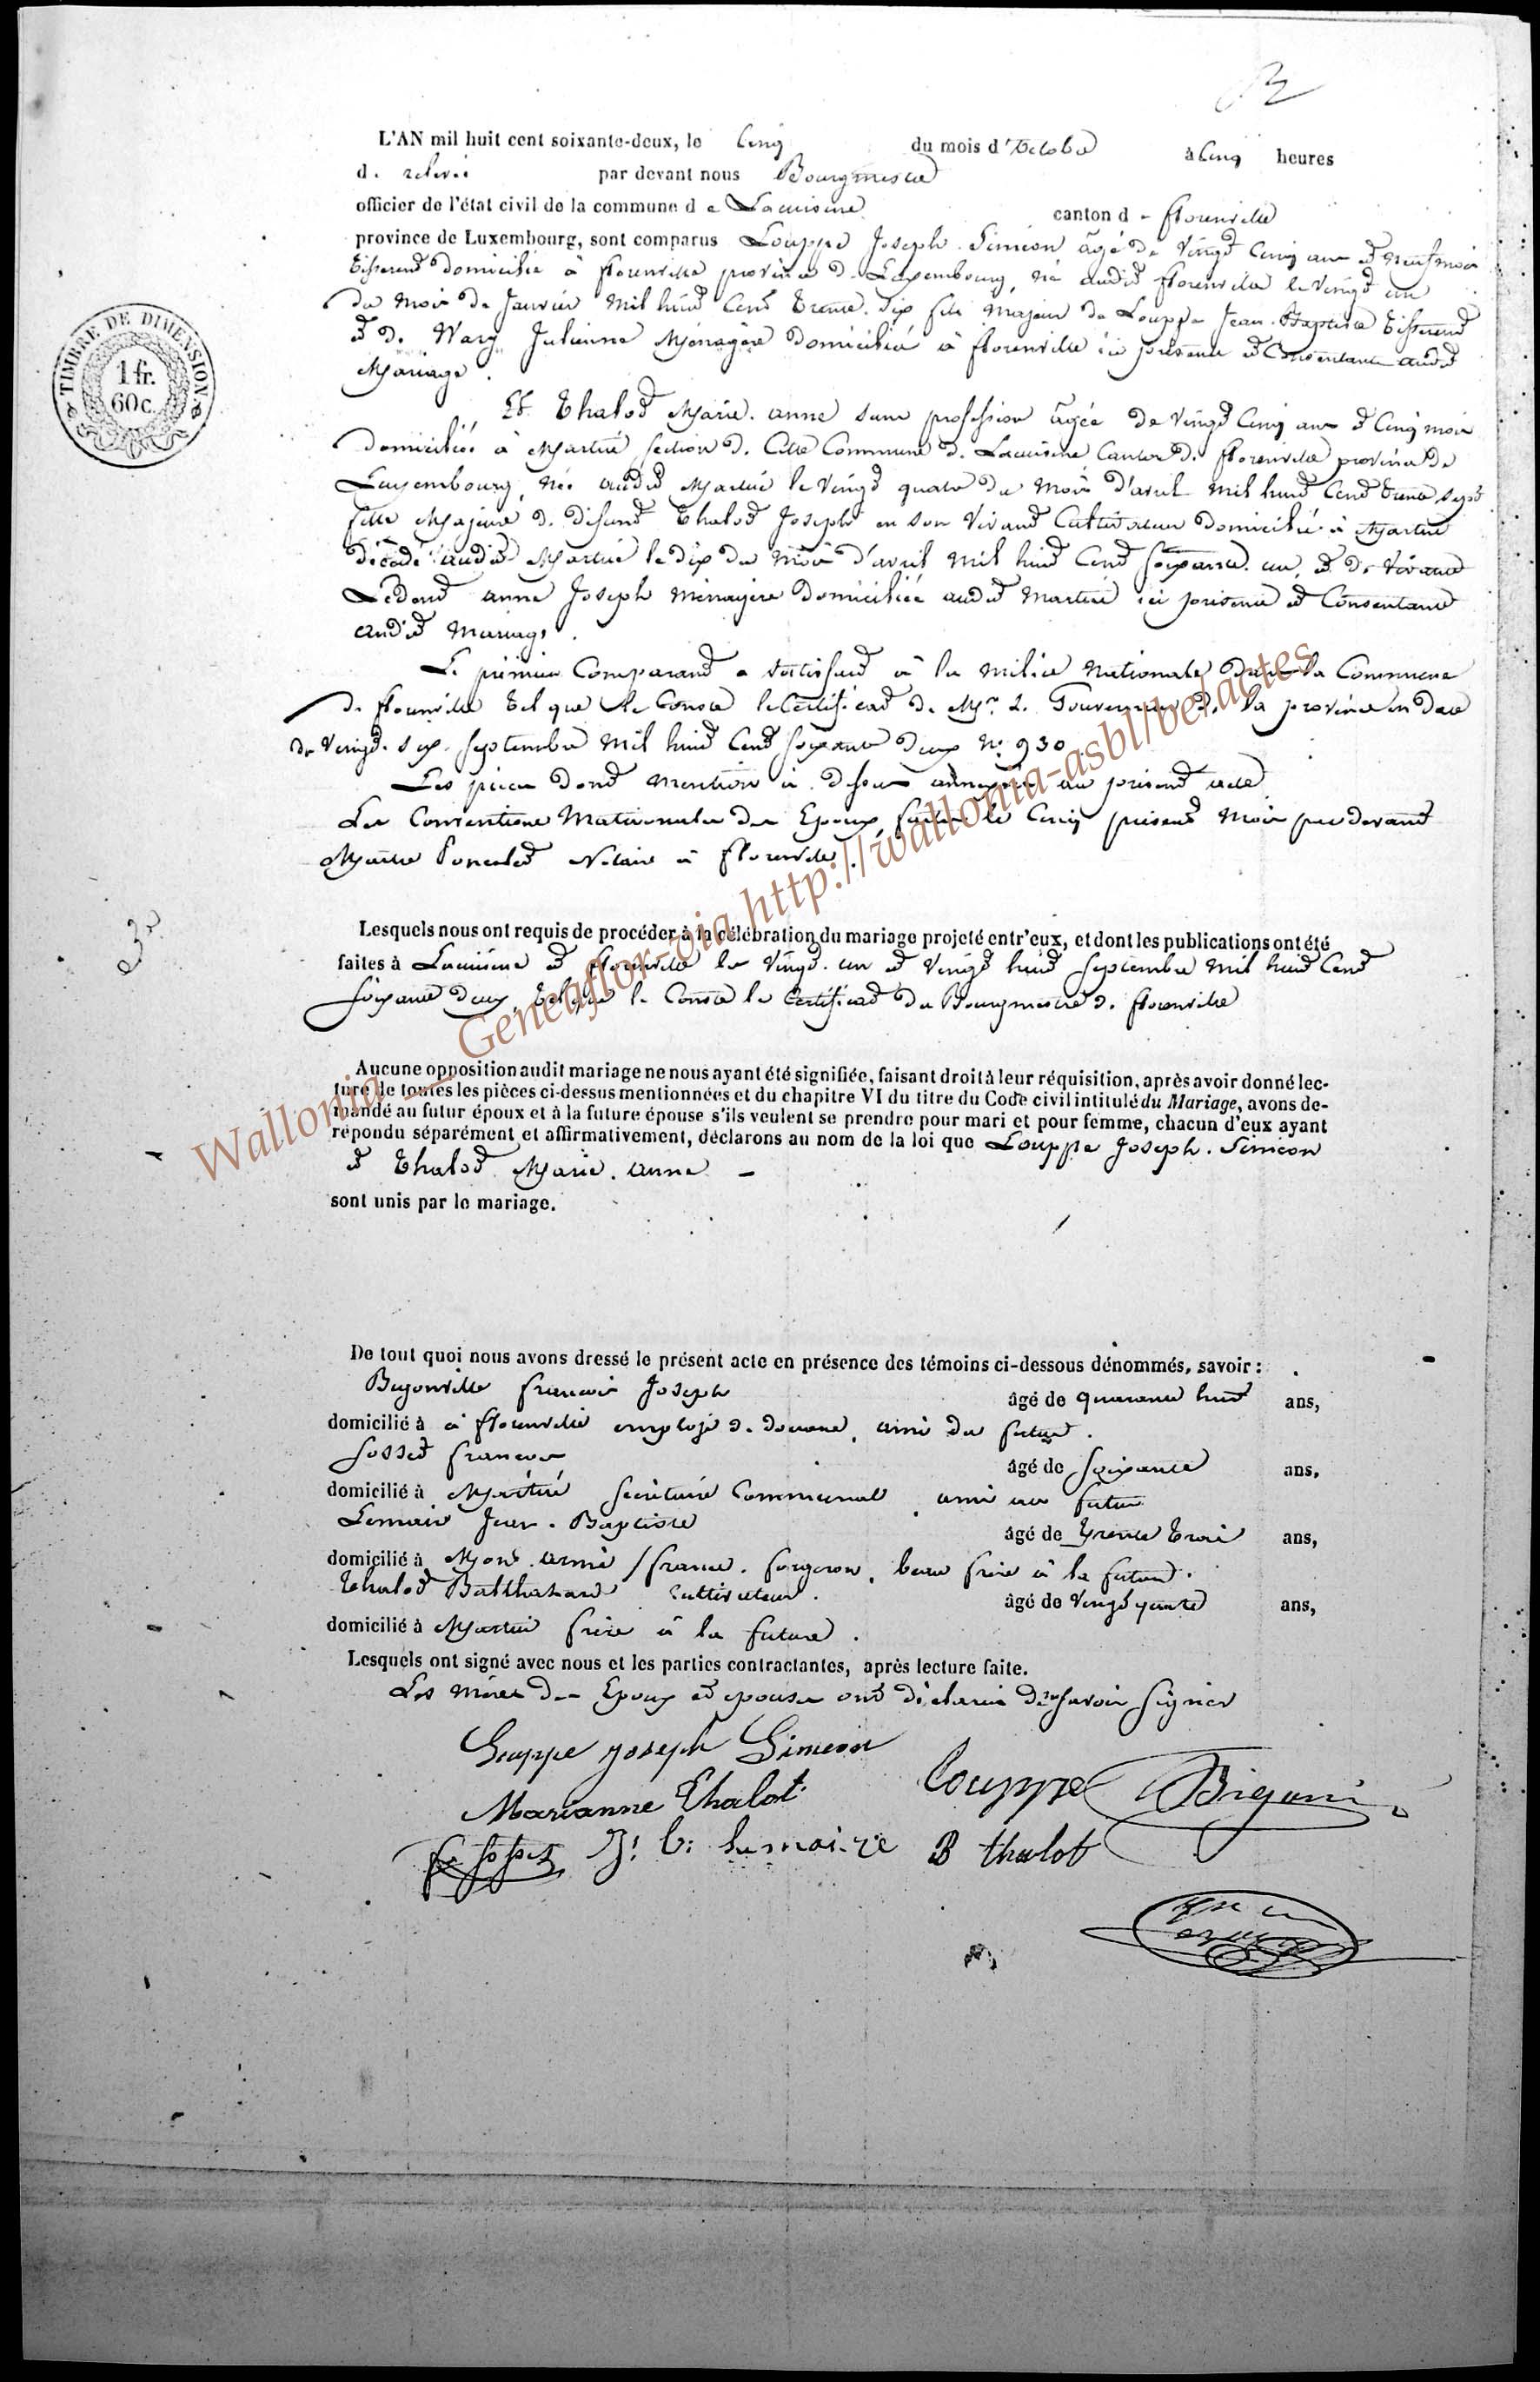 L'AN mil huit cent soixante-deux, le Cinq du mois d'Octobre à Cinq heures
d. relevée par devant nous Bourgmestre
officier de l'état civil de la commune de Lacuisine canton d - florenville
province de Luxembourg, sont comparus Louppe Joseph. Siméon âgé de Vingt Cinq ans et Neuf mois
tisserand domicilié à florenville province de Luxembourg, né audit florenville le vingt un
du Mois de Janvier Mil huit Cent trente. Six fils majeur de Louppe Jean-Baptiste tisserand
et d. Wary Julienne Ménagère domicilié à florenville ici présente et Consentante audit
Mariage.
Et Thalot Marie. anne sans profession âgée de Vingt Cinq ans et Cinq mois
domiciliée à Martué section d. Cette Commune d. Lacuisine Canton d. florenville province de
Luxembourg, née audit Martué le Vingt quatre du Mois d'avril Mil huit Cent trente sept
fille Majeure d. défunt Thalot Joseph en son Vivant Cultivateur domicilié à Martué
décédé audit Martué le dix du Mois d'avril Mil huit Cent soixante. un, et d. Vivante
Ledent anne Joseph Ménagère domiciliée audit Martué ici présente et Consentante
audit Mariage.
Le premier Comparant a satisfait à la Milice Nationale dans la Commune
d. florenville tel que le Conste le Certificat de Mr. L. Gouverneur d. la province en date
de Vingt. six. septembre Mil huit Cent soixante deux No. 930.
Les pièces dont mention ci. dessus annexées au présent acte
Les Conventions Matrimoniales des Epoux, faites le Cinq présent Mois par devant
Maitre Poncelet Notaire à florenville.
Lesquels nous ont requis de procéder à la célébration du mariage projeté entr'eux, et dont les publications ont été
faites à Lacuisine et florenville les Vingt. un et Vingt huit septembre Mil huit Cent
soixante deux, tel que le Conste le Certificat du Bourgmestre d. florenville
Aucune opposition audit mariage ne nous ayant été signifiée, faisant droit à leur réquisition, après avoir donné lec-
ture de toutes les pièces ci-dessus mentionnées et du chapitre VI du titre du Code civil intitulé du Mariage, avons de-
mandé au futur époux et à la future épouse s'ils veulent se prendre pour mari et pour femme, chacun d'eux ayant
répondu séparément et affirmativement, déclarons au nom de la loi que Louppe Joseph. Siméon
et Thalot Marie. anne -
sont unis par le mariage.
De tout quoi nous avons dressé le présent acte en présence des témoins ci-dessous dénommés, savoir :
françois Joseph âgé de quarante huit ans,
domicilié à à florenville employé d. douane, ami du futur.
fosset françois âgé de soixante ans,
domicilié à Martué secrétaire Communal, ami au futur
Lemaire Jean-Baptiste âgé de trente trois ans,
domicilié à france. forgeron, beau frère à la future.
Thalot Balthazard Cultivateur. âgé de Vingt quatre ans,
domicilié à Martué frère à la future.
Lesquels ont signé avec nous et les parties contractantes, après lecture faite.
Les Mères des Epoux et épouse ont déclaré de ne savoir signer
Louppe joseph Simeon
Marianne Thalot Louppe
J. b. Lemaire B thalot
TIMBRE DE DIMENSION
1 fr.
60 c.
Wallonia - Geneaflor - via http://wallonia-asbl/be.actes